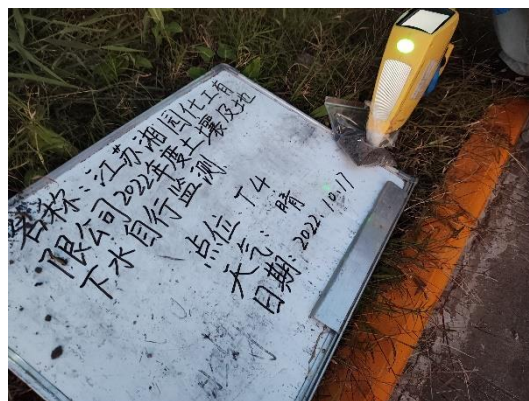 名称:江苏湘园化工有
限公司2022年度土壤及地
下水自行监测
点位 T4
天气:晴
日期:2022.10.17